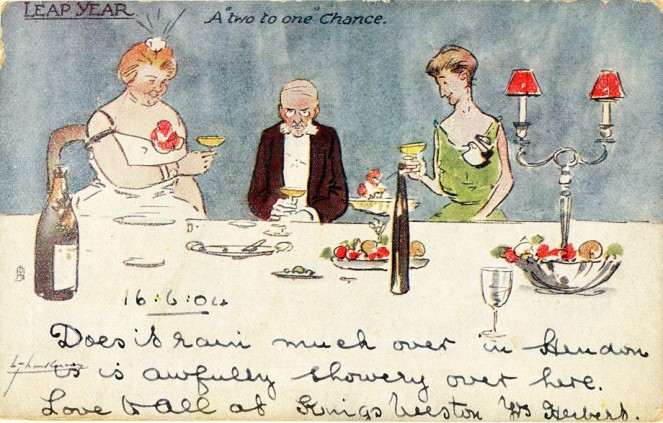 LEAP YEAR
A "two to one" Chance.
16:6:04
Does it rain much over in Hendon
it is awfully showery over here.
Love to All at Kings Weston Yrs Herbert.